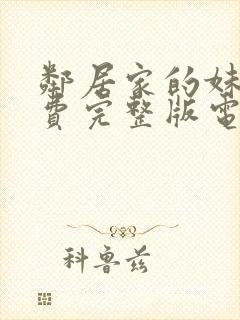 鄰居家的妹
費完整版電
科鲁兹